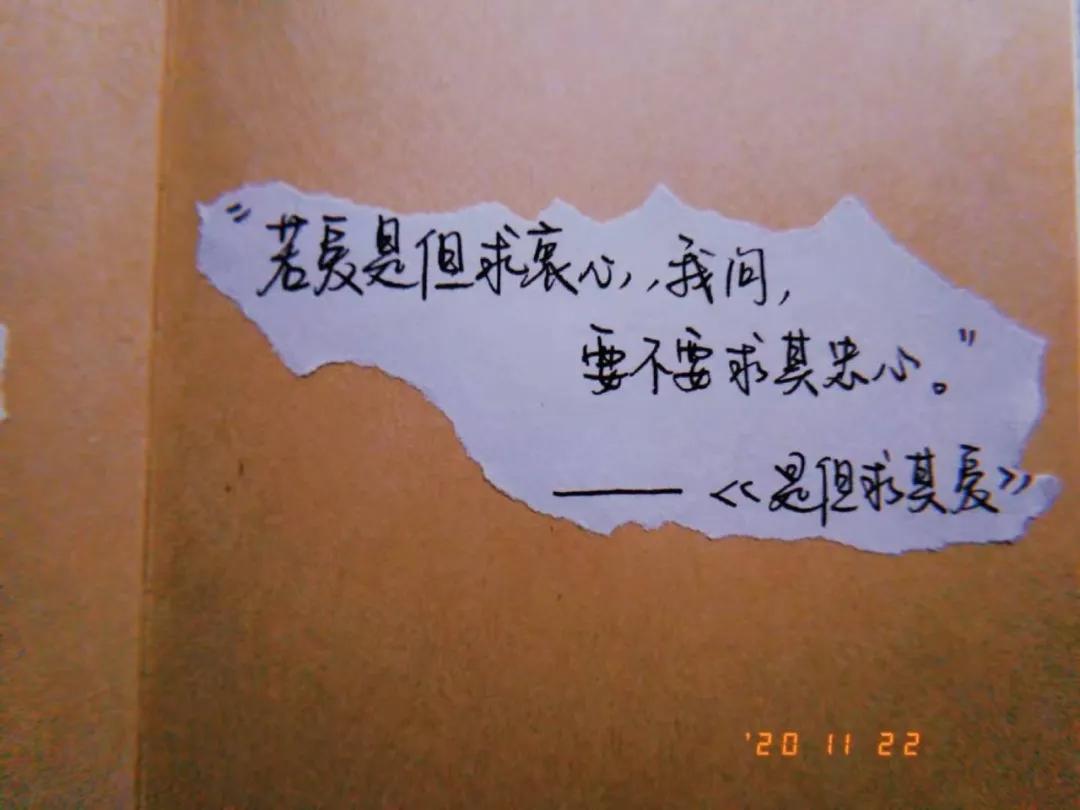 "若爱是但求衷心，我问，
要不要求其忠心。"
——《是但求其爱》
'20 11 22